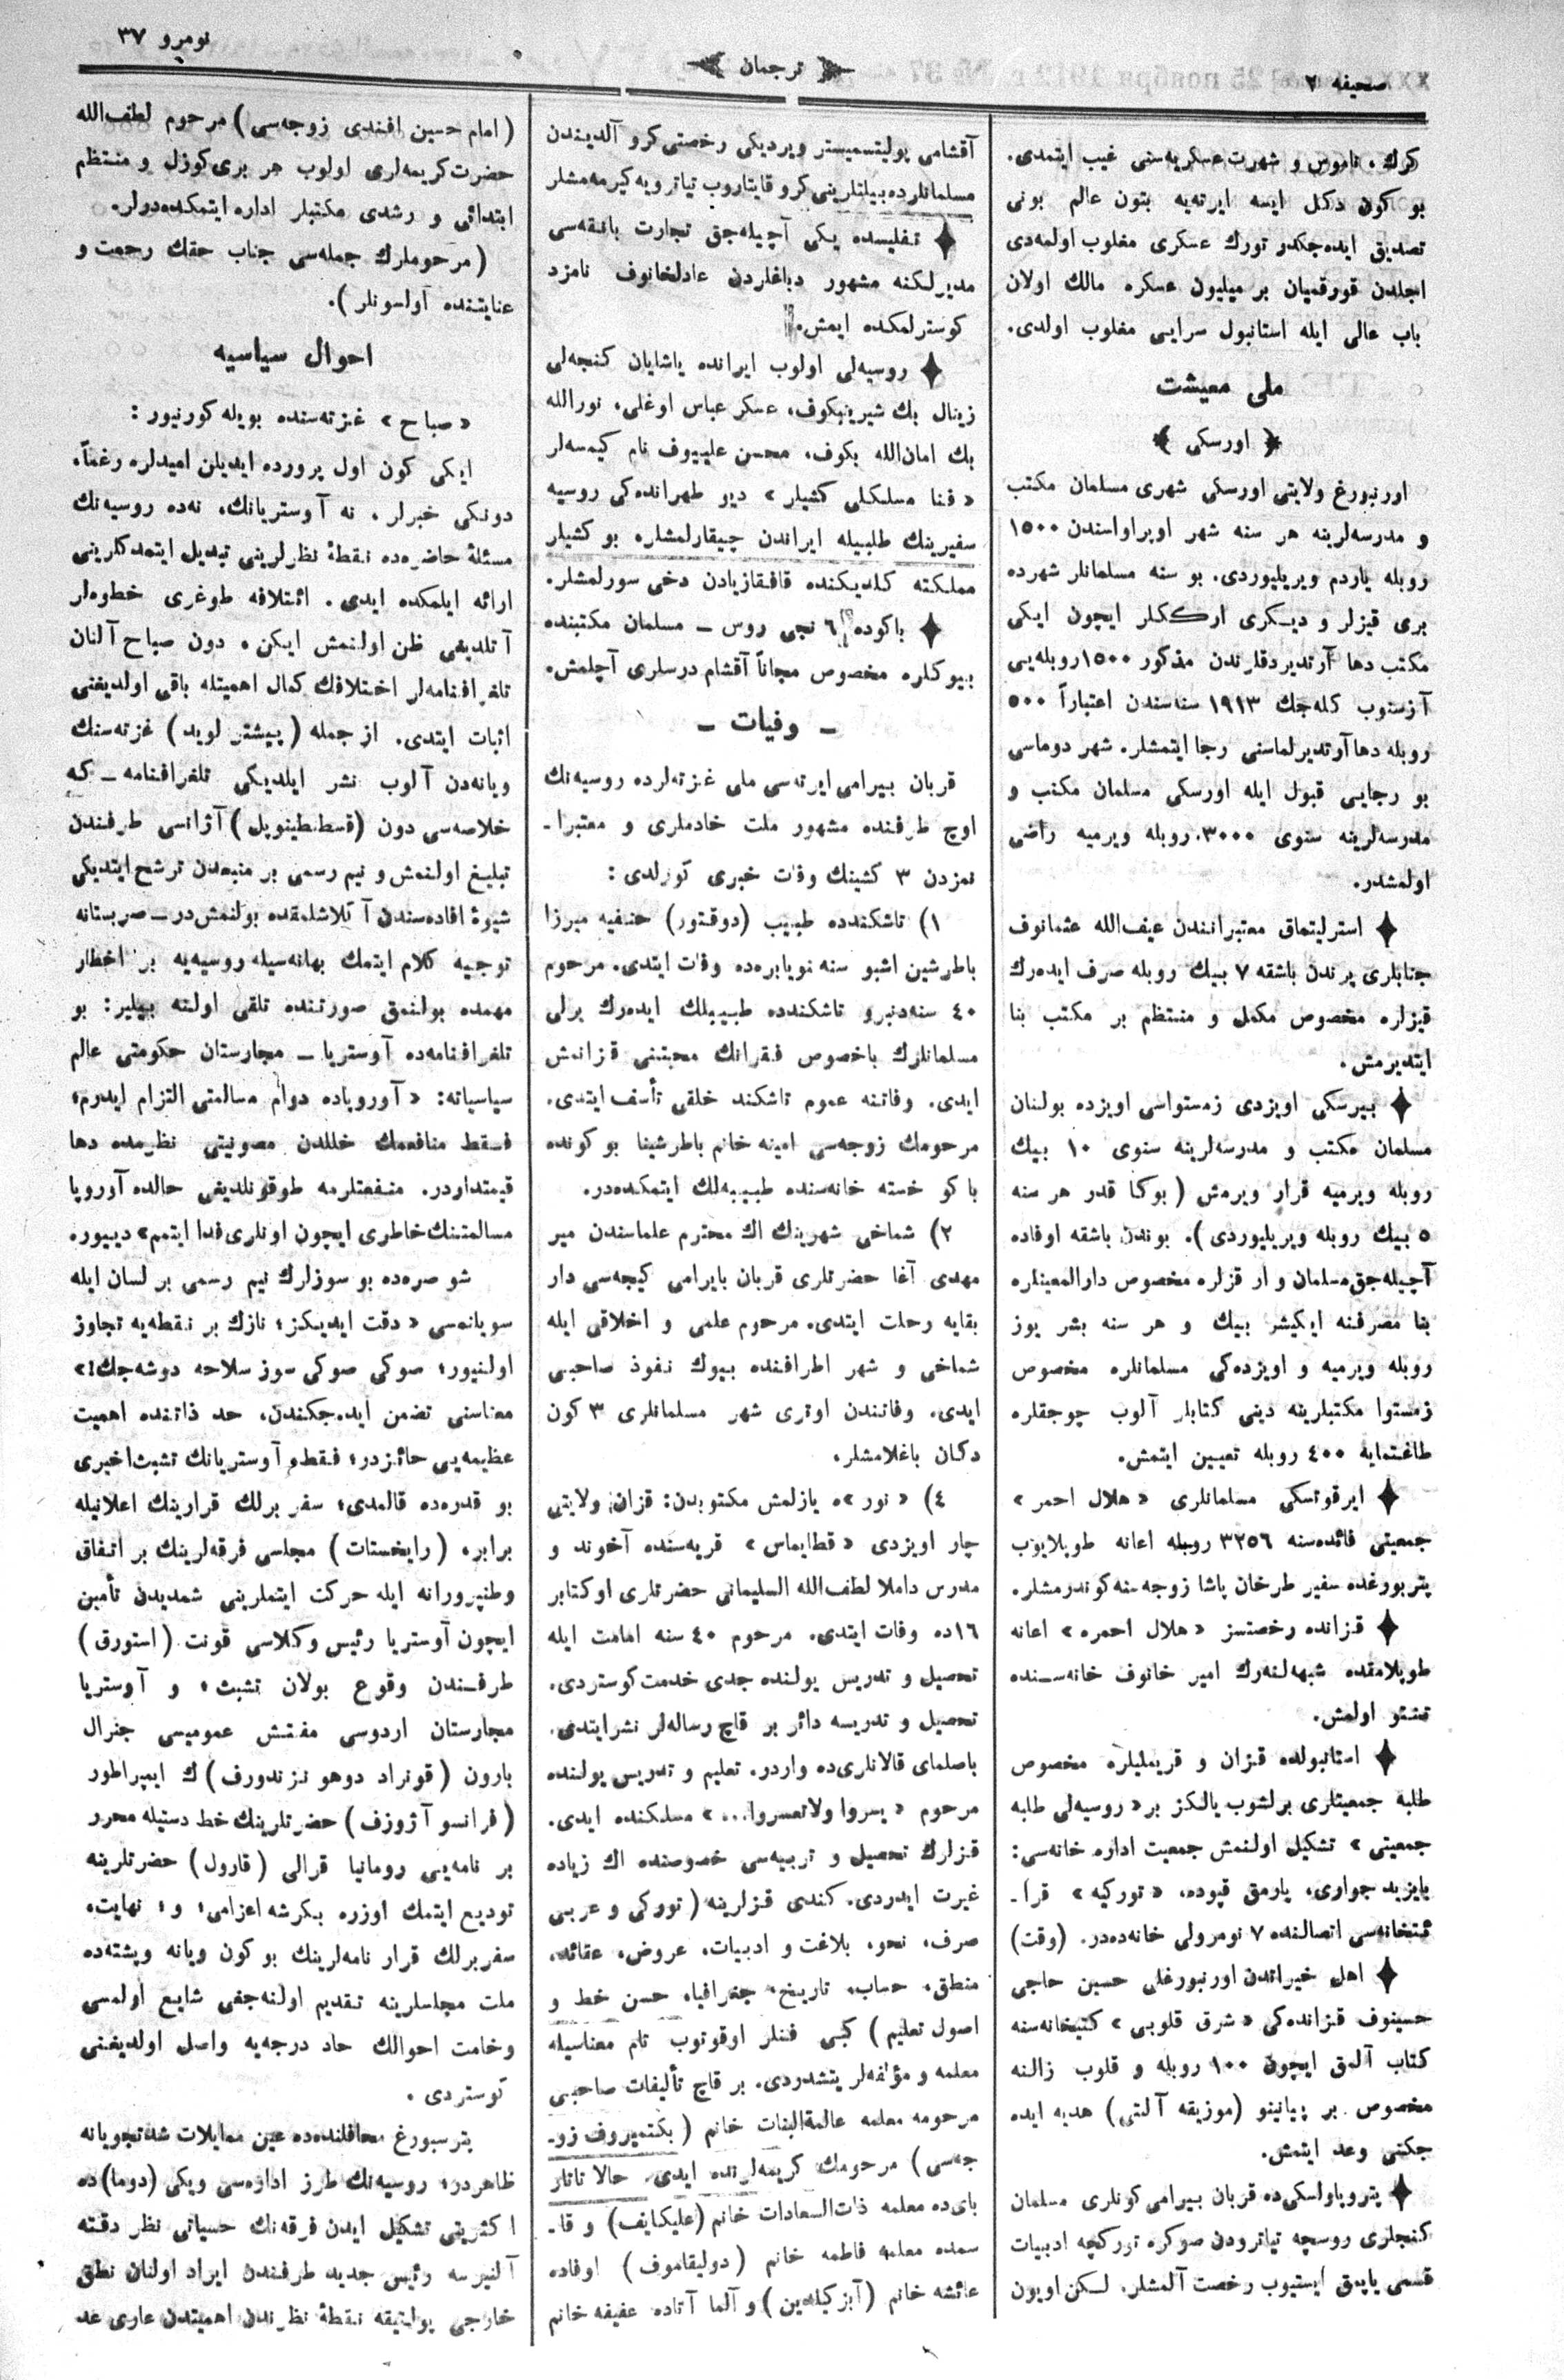 صحیفه ۷
ترجمان
نومرو ۳۷
كرك، ناموس و شهرت عسكریه‌سنی غیب ایتمدی.
بو كون دكل ایسه ایرته‌یه بتون عالم بونی
تصدیق ایده‌جكدر تورك عسكری مغلوب اولمه‌دی
اجلدن قورقمیان بر میلیون عسكره مالك اولان
باب عالی ایله استانبول سرایی مغلوب اولدی.
ملی معیشت
﴿ اورسكی ﴾
اورنبورغ ولایتی اورسكی شهری مسلمان مكتب
و مدرسه‌لرینه هر سنه شهر اوپراواسندن ۱۵۰۰
روبله یاردم ویریلیوردی. بو سنه مسلمانلر شهرده
بری قیزلر و دیكری ارككلر ایچون ایكی
مكتب دها آرتدیردقلرندن مذكور ۱۵۰۰ روبله‌یی
آزسنوب كله‌جك ۱۹۱۳ سنه‌سندن اعتباراً ۵۰۰
روبله دها آرتدیرلماسنی رجا ایتمشلر. شهر دوماسی
بو رجایی قبول ایله اورسكی مسلمان مكتب و
مدرسه‌لرینه سنوی ۳۰۰۰ روبله ویرمیه راضی
اولمشدر.
استرلیتماق معتبرانندن عیف‌الله عثمانوف
جنابلری پرندن باشقه ۷ بیك روبله صرف ایده‌رك
قیزلره مخصوص مكمل و منتظم بر مكتب بنا
ایتدیرمش.
بیرسكی اویزدی زمستواسی اویزده بولنان
مسلمان مكتب و مدرسه‌لرینه سنوی ۱۰ بیك
روبله ویرمیه قرار ویرمش (بوكا قدر هر سنه
۵ بیك روبله ویریلیوردی). بوندن باشقه اوفاده
آچیله‌جق مسلمان و ار قزلره مخصوص دارالمعینلره
بنا مصرفنه ایكیشر بیك و هر سنه بشر یوز
روبله ویرمیه و اویزده‌كی مسلمانلره مخصوص
زمستوا مكتبلرینه دینی كتابلر آلوب چوجقلره
طاغتمایه ۴۰۰ روبله تعیین ایتمش.
ایرقوتسكی مسلمانلری «هلال احمر»
جمعیتی فائده‌سنه ۳۲۵۶ روبله اعانه طوپلایوب
پتربورغده سفیر طرخان پاشا زوجه‌سنه كوندرمشلر.
قزانده رخصتسز «هلال احمره» اعانه
طوپلامقده شبهه‌لنه‌رك امیر خانوف خانه‌سنده
تفتیش اولمش.
استانبولده قزان و قریملیلره مخصوص
طلبه جمعیتلری برلشوب یالكز بر «روسیه‌لی طلبه
جمعیتی» تشكیل اولنمش جمعیت اداره خانه‌سی:
بایزید جواری، یارمق قپوده، «توركیه» قرأ-
ئتخانه‌سی اتصالنده ۷ نومرولی خانه‌ده‌در. (وقت)
اهل خیراتدن اورنبورغلی حسین حاجی
حسینوف قزانده‌كی «شرق قلوبی» كتبخانه‌سنه
كتاب آلمق ایچون ۱۰۰ روبله و قلوب زالنه
مخصوص بر پیانینو (موزیقه آلتی) هدیه ایده
جكنی وعد ایتمش.
پتروپاولسكی‌ده قربان بیرامی كونلری مسلمان
كنجلری روسچه تیاترودن صوكره توركچه ادبیات
قسمی یاپمق ایستیوب رخصت آلمشلر. لكن اویون
آقشامی پولیتسمیستر ویردیكی رخصتی كرو آلدیندن
مسلمانلرده بیلتلرینی كرو قایتاروب تیاترویه كیرمه‌مشلر
تفلیسده یكی آچیله‌جق تجارت بانقه‌سی
مدیرلكنه مشهور دباغلردن عادلخانوف نامزد
كوسترلمكده ایمش.
روسیه‌لی اولوب ایرانده یاشایان كنجه‌لی
زینال بك شیرینبكوف، عسكر عباس اوغلی، نورالله
بك امان‌الله بكوف، محسن علییوف نام كیمسه‌لر
«فنا مسلكلی كشیلر» دیو طهرانده‌كی روسیه
سفیرینك طلبیله ایراندن چیقارلمشلره بو كشیلر
مملكته كلدیكنده قافقازیادن دخی سورلمشلر.
باكوده ۶ نجی روس ـ مسلمان مكتبنده
بیوكلره مخصوص مجاناً آقشام درسلری آچلمش.
ـ وفیات ـ
قربان بیرامی ایرته‌سی ملی غزته‌لرده روسیه‌نك
اوچ طرفنده مشهور ملت خادملری و معتبرا-
نمزدن ۳ كشینك وفات خبری كورلدی:
۱) تاشكندده طبیب (دوقتور) حنفیه میرزا
باطرشین اشبو سنه نویابره‌ده وفات ایتدی. مرحوم
۴۰ سنه‌دنبرو تاشكندده طبیبلك ایده‌رك یرلی
مسلمانلرك باخصوص فقرانك محبتنی قزانمش
ایدی. وفاتنه عموم تاشكند خلقی تأسف ایتدی.
مرحومك زوجه‌سی امینه خانم باطرشینا بو كونده
باكو خسته خانه‌سنده طبیبه‌لك ایتمكده‌در.
۲) شماخی شهرینك اك محترم علماسندن میر
مهدی آغا حضرتلری قربان بایرامی كیجه‌سی دار
بقایه رحلت ایتدی. مرحوم علمی و اخلاقی ایله
شماخی و شهر اطرافنده بیوك نفوذ صاحبی
ایدی. وفاتندن اوتری شهر مسلمانلری ۳ كون
دكان باغلامشلر.
۴) «نور»ه یازلمش مكتوبدن: قزان ولایتی
چار اویزدی «قطایماس» قریه‌سنده آخوند و
مدرس داملا لطف‌الله السلیمانی حضرتلری اوكتابر
۱۶ده وفات ایتدی. مرحوم ۴۰ سنه امامت ایله
تحصیل و تدریس یولنده جدی خدمت كوستردی.
تحصیل و تدریسه دائر بر قاچ رساله‌لر نشر ایتدی.
باصلمای قالانلری‌ده واردر. تعلیم و تدریس یولنده
مرحوم «یسروا ولاتعسروا...» مسلكنده ایدی.
قزلرك تحصیل و تربیه‌سی خصوصنده اك زیاده
غیرت ایدردی. كندی قزلرینه (توركی و عربی
صرف، نحو، بلاغت و ادبیات، عروض، عقائد،
منطق، حساب، تاریخ، جغرافیا، حسن خط و
اصول تعلیم) كبی فنلر اوقوتوب تام معناسیله
معلمه و مؤلفه‌لر یتشدردی. بر قاچ تألیفات صاحبی
مرحومه معلمه عالمة‌البنات خانم (بكتمیروف زو-
جه‌سی) مرحومك كریمه‌لرنده ایدی. حالا تاتار
بای‌ده معلمه ذات‌السعادات خانم (علیكایف) و قا-
سمده معلمه فاطمه خانم (دولیقاموف) اوفاده
عائشه خانم (آبزكیلدین) و آلما آتاده عفیفه خانم
(امام حسین افندی زوجه‌سی) مرحوم لطف‌الله
حضرت كریمه‌لری اولوب هر بری كوزل و منتظم
ابتدائی و رشدی مكتبلر اداره ایتمكده‌درلر.
(مرحوملرك جمله‌سی جناب حقك رحمت و
عنایتنده اولسونلر).
احوال سیاسیه
«صباح» غزته‌سنده بویله كورنیور:
ایكی كون اول پرورده ایدیلن امیدلره رغماً،
دونكی خبرلر، نه آوستریانك، نه‌ده روسیه‌نك
مسئلهٔ حاضره‌ده نقطهٔ نظرلرینی تبدیل ایتمدكلرینی
ارائه ایلمكده ایدی. ائتلافه طوغری خطوه‌لر
آتلدیغی ظن اولنمش ایكن، دون صباح آلنان
تلغرافنامه‌لر اختلافك كمال اهمیتله باقی اولدیغنی
اثبات ایتدی. از جمله (پیشتر لوید) غزته‌سنك
ویانه‌دن آلوب نشر ایلدیكی تلغرافنامه ـ كه
خلاصه‌سی دون (قسطنطینوپل) آژانسی طرفندن
تبلیغ اولنمش و نیم رسمی بر منبعدن ترشح ایتدیكی
شیوهٔ افاده‌سندن آكلاشلمقده بولنمش‌در ـ صربستانه
توجیه كلام ایتمك بهانه‌سیله روسیه‌یه بر اخطار
مهمده بولنمق صورتنده تلقی اولنه بیلیر: بو
تلغرافنامه‌ده آوستریا ـ مجارستان حكومتی عالم
سیاسیاته: «آوروپاده دوام مسالمتی التزام ایدرم؛
فقط منافعمك خللدن مصونیتی نظرمده دها
قیمتداردر. منفعتلرمه طوقونلدیغی حالده آوروپا
مسالمتنك خاطری ایچون اونلری فدا ایتمم» دیییور.
شو صره‌ده بو سوزلرك نیم رسمی بر لسان ایله
سویلنمسی «دقت ایدیكز؛ نازك بر نقطه‌یه تجاوز
اولنیور؛ صوكی صوكی سوز سلاحه دوشه‌جك!»
معناسنی تضمن ایده‌جكندن، حد ذاتنده اهمیت
عظیمه‌یی حائزدر؛ فقط آوستریانك تشبث اخیری
بو قدرده قالمدی؛ سفر برلك قرارینك اعلانیله
برابر، (رایخستات) مجلسی فرقه‌لرینك بر اتفاق
وطنپرورانه ایله حركت ایتملرینی شمدیدن تأمین
ایچون آوستریا رئیس وكلاسی قونت (استورق)
طرفندن وقوع بولان تشبث؛ و آوستریا
مجارستان اردوسی مفتش عمومیسی جنرال
بارون (قونراد دوهوتزندورف)ك ایمپراطور
(فرانسوآ ژوزف) حضرتلرینك خط دستیله محرر
بر نامه‌یی رومانیا قرالی (قارول) حضرتلرینه
تودیع ایتمك اوزره بكرشه اعزامی؛ و؛ نهایت،
سفربرلك قرار نامه‌لرینك بو كون ویانه وپشته‌ده
ملت مجلسلرینه تقدیم اولنه‌جغی شایع اولمسی
وخامت احوالك حاد درجه‌یه واصل اولدیغنی
كوستردی.
پترسبورغ محافلنده‌ده عین تمایلات شدتجویانه
ظاهردر؛ روسیه‌نك طرز اداره‌سی ویكی (دوما)ده
اكثریتی تشكیل ایدن فرقه‌نك حسیاتی نظر دقته
آلنیرسه رئیس جدید طرفندن ایراد اولنان نطق
خارجی پولیتیقه نقطهٔ نظرندن اهمیتدن عاری عد